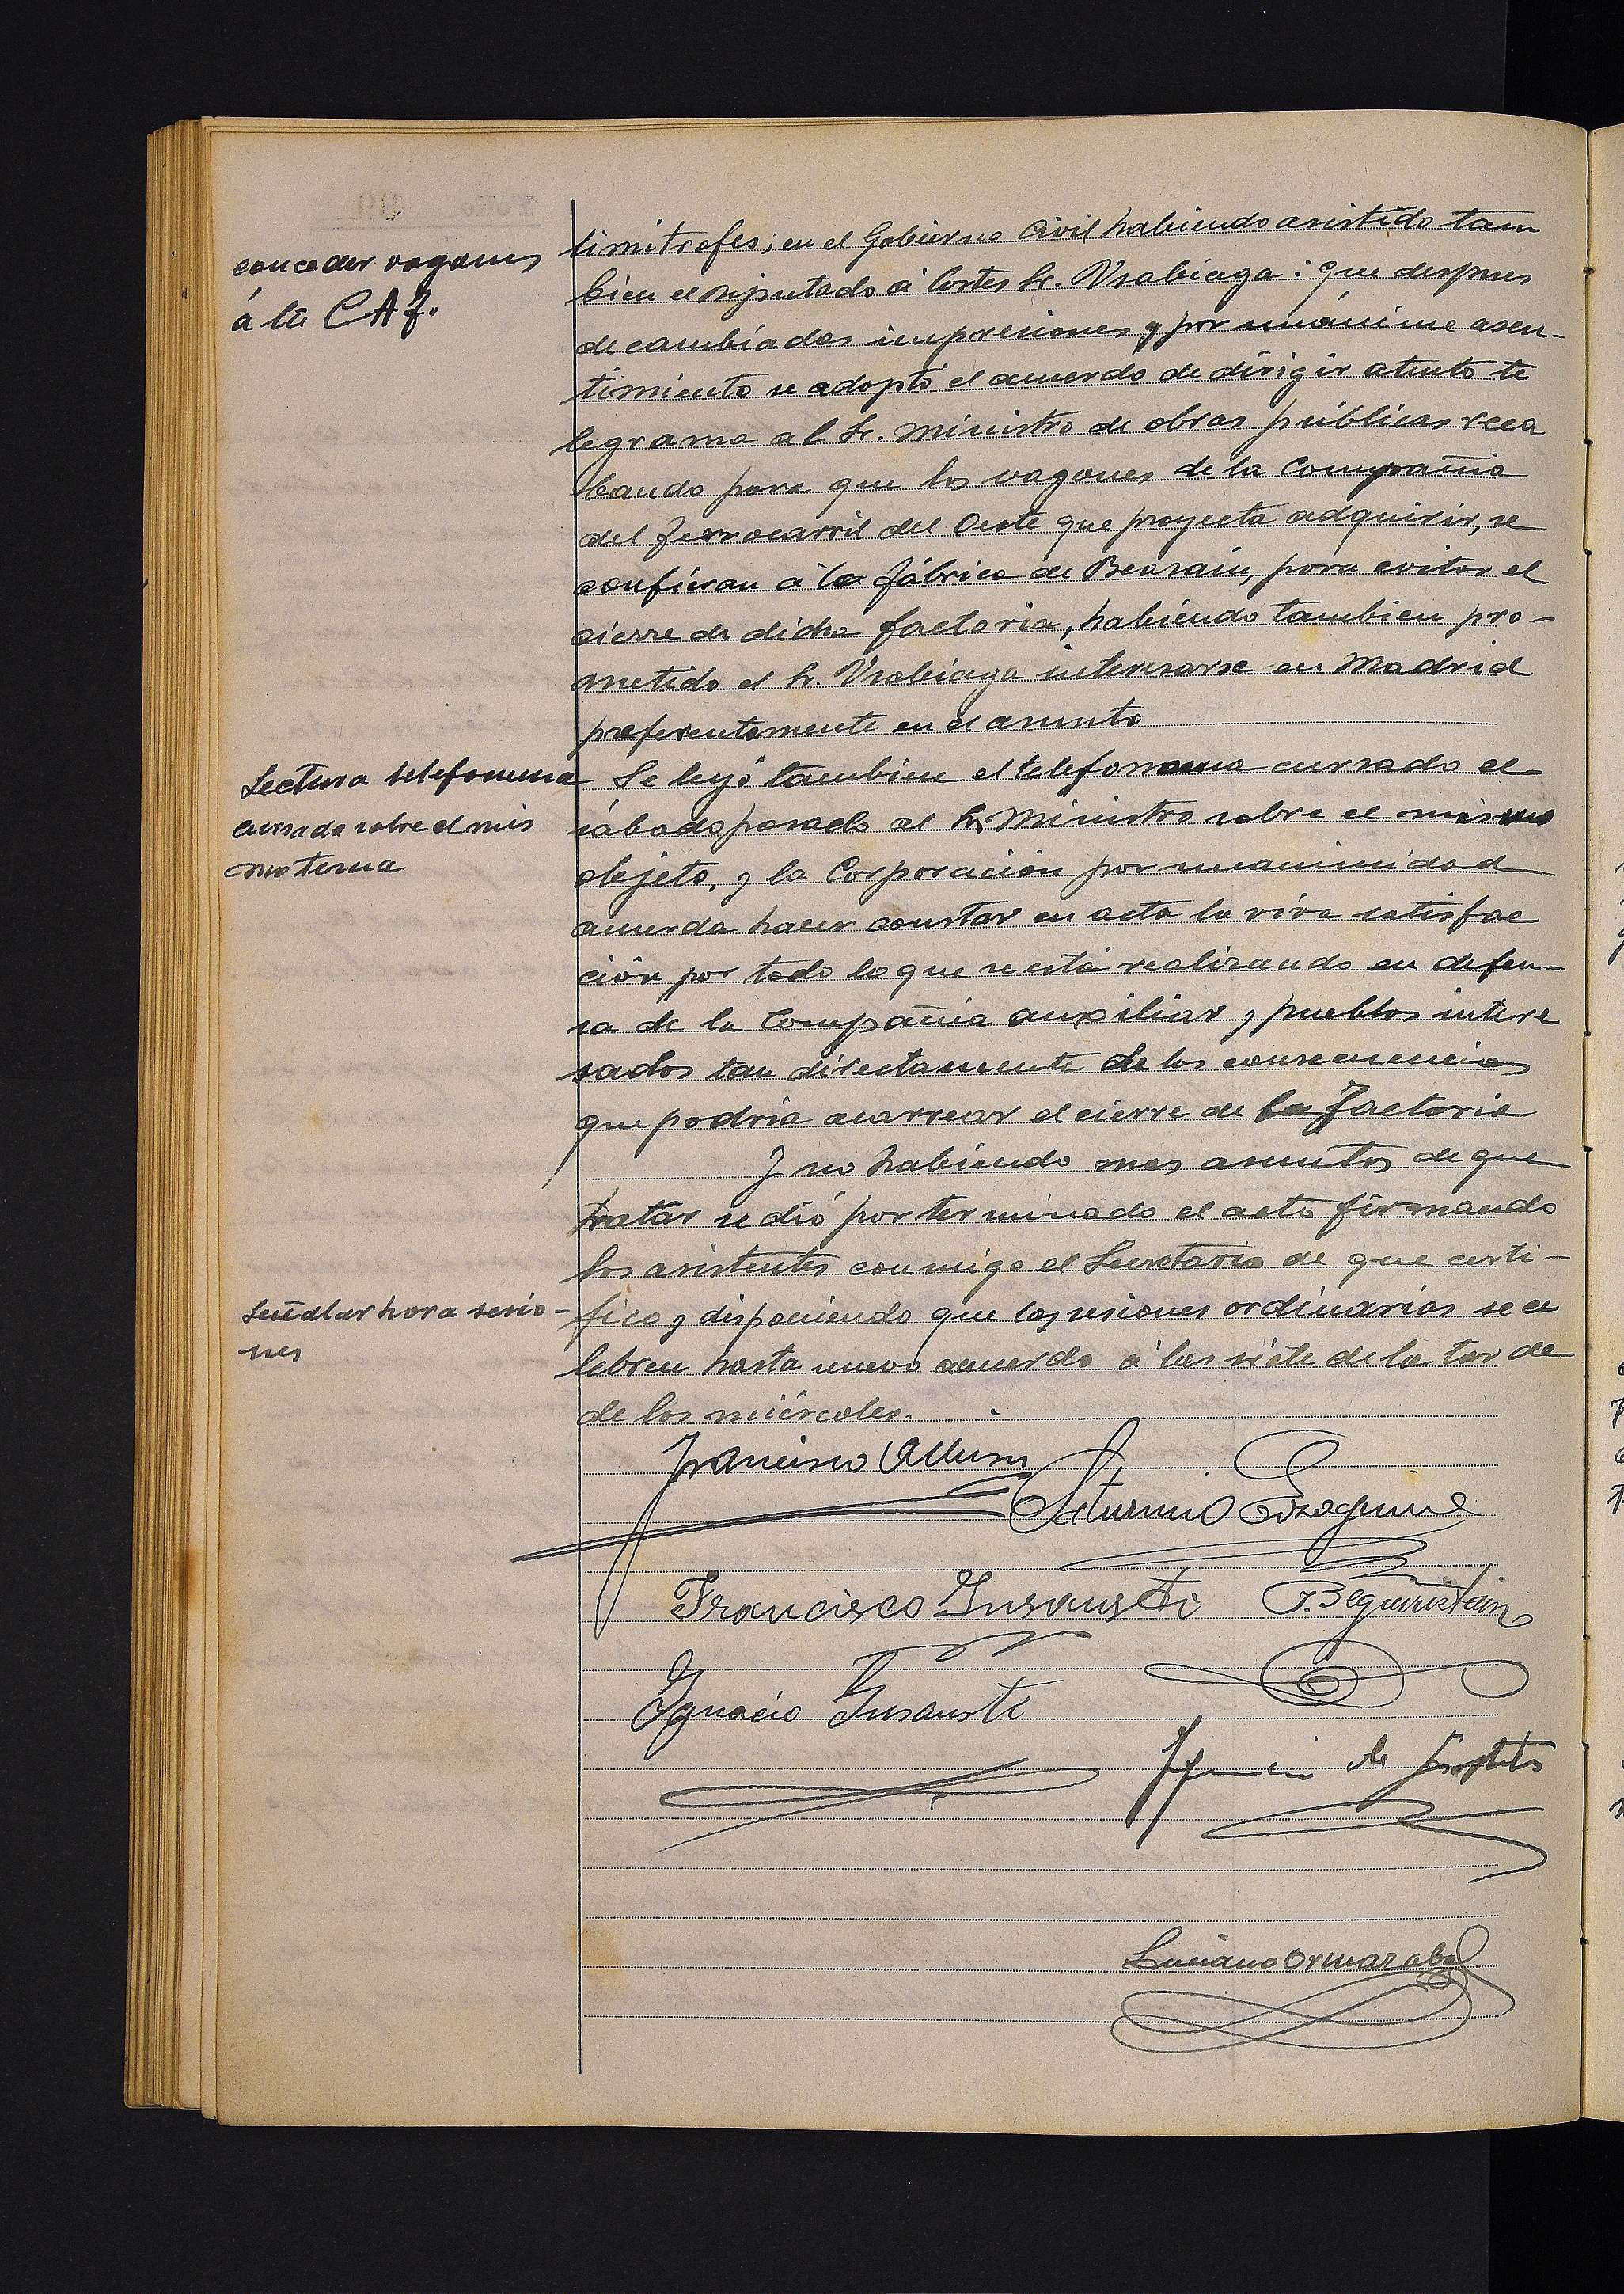 conceder vagones
á la CAF.
limitrofes; en el Gobierno Civil habiendo asistido tam
bien el Diputado á Cortes Sr. Usabiaga: que despues
de cambiadas impresiones y por unánime asen-
timiento se adoptó el acuerdo de dirigir atento te
legrama al Sr. Ministro de obras públicas reca
bando para que los vagones de la Compañia
del ferrocarril del Oeste que proyecta adquirir, se
confieran á la fábrica de Beasain, para evitar el
cierre de dicha factoria, habiendo tambien pro-
metido el Sr. Usabiaga interesarse en Madrid
preferentemente en el asunto
Lectura telefonema
cursado sobre el mis
mo tema
Se leyó tambien el telefonema cursado el
sábado pasado al Sr. Ministro sobre el mismo
objeto, y la Corporación por unanimidad
acuerda hacer constar en acta la viva satisfac
ción por todo lo que se está realizando en defen-
sa de la Compañia auxiliar y pueblos intere
sados tan directamente de las consecuencias
que podria acarrear el cierre de la Factoria
Y no habiendo mas asuntos de que
tratar se dió por terminado el acto firmando
los asistentes conmigo el Secretario de que certi-
Señalar hora sesio-
nes
fico y disponiendo que las sesiones ordinarias se ce
lebren hasta nuevo acuerdo á las siete de la tarde
de los miércoles.
Francisco
Saturnino Eizaguirre
Francisco Insausti J. Beguiristain
Ignacio Insausti
de
Luciano Ormazabal